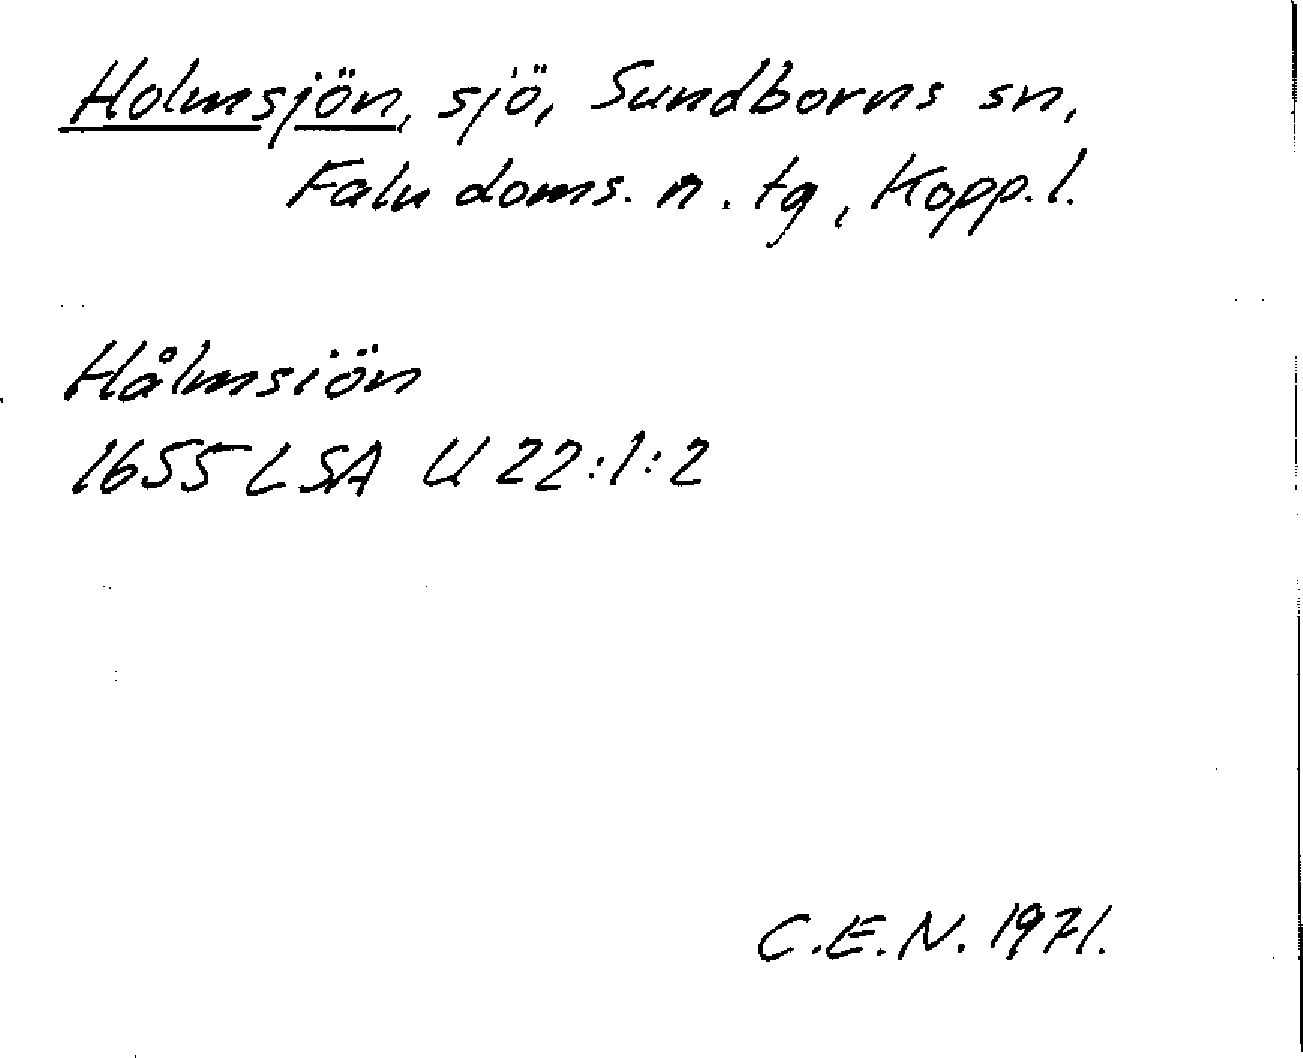 Holmsjön, sjö, Sundborns sn,
Falu doms. n. tg, Kopp.l.
Hålmsiön
1655 LSA U 22:1:2
C.E.N. 1971.